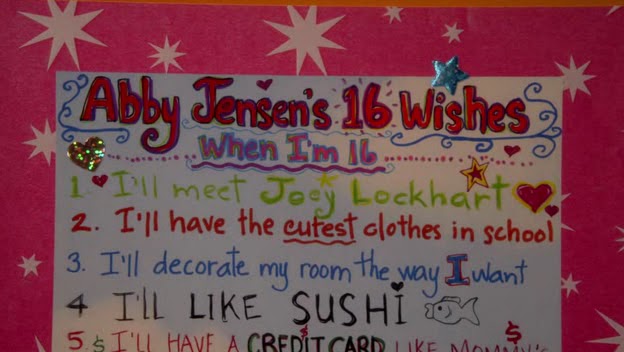 Abby Jensen's 16 Wishes
When I'm 16
1. I'll meet Joey Lockhart
2. I'll have the cutest clothes in school
3. I'll decorate my room the way I want
4 I'LL LIKE SUSHi
5. $ I'LL HAVE A CREDIT CARD LIKE MOMMY'S